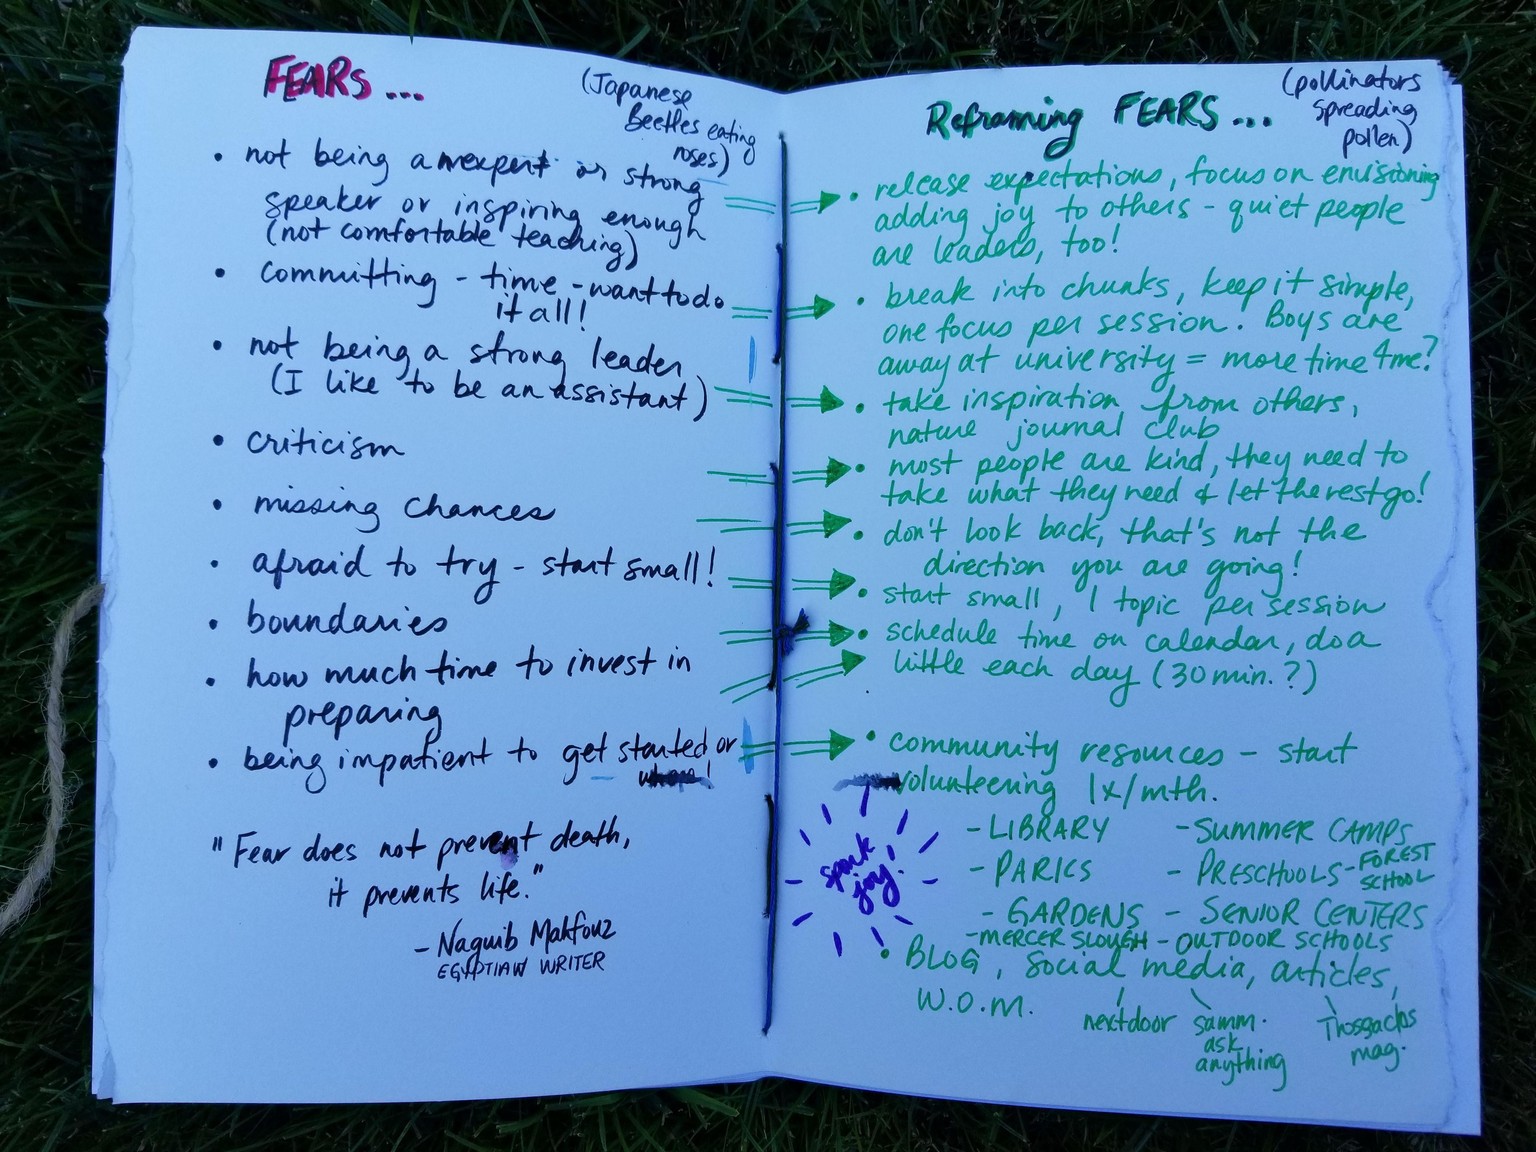 FEARS...
(Japanese
Beetles eating
roses)
• not being an expert or strong
speaker or inspiring enough
(not comfortable teaching)
• committing - time - want to do
it all!
• not being a strong leader
(I like to be an assistant)
• criticism
• missing chances
• afraid to try - start small!
• boundaries
• how much time to invest in
preparing
• being impatient to get started or
"Fear does not prevent death,
it prevents life."
- Naguib Mahfouz
EGYPTIAN WRITER
Reframing FEARS...
(pollinators
spreading
pollen)
• release expectations, focus on envisioning
adding joy to others - quiet people
are leaders, too!
• break into chunks, keep it simple,
one focus per session. Boys are
away at university = more time 4 me?
• take inspiration from others,
nature journal club
• most people are kind, they need to
take what they need & let the rest go!
• don't look back, that's not the
direction you are going!
• start small, 1 topic per session
• schedule time on calendar, do a
little each day (30 min.?)
• community resources - start
volunteering 1x/mth.
spark
joy!
- LIBRARY - SUMMER CAMPS
- PARKS - PRESCHOOLS - FOREST
SCHOOL
- GARDENS - SENIOR CENTERS
- MERCER SLOUGH - OUTDOOR SCHOOLS
• BLOG, social media, articles,
W.O.M.
nextdoor
samm.
ask
anything
mag.